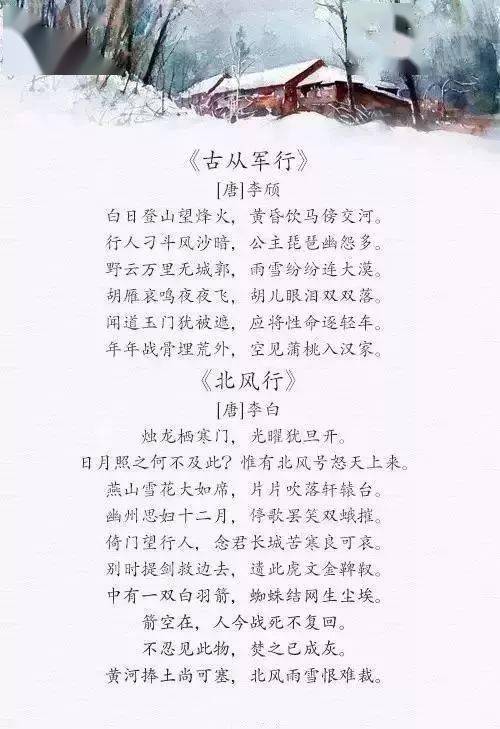 《古从军行》
[唐]李颀
白日登山望烽火，黄昏饮马傍交河。
行人刁斗风沙暗，公主琵琶幽怨多。
野云万里无城郭，雨雪纷纷连大漠。
胡雁哀鸣夜夜飞，胡儿眼泪双双落。
闻道玉门犹被遮，应将性命逐轻车。
年年战骨埋荒外，空见蒲桃入汉家。
《北风行》
[唐]李白
烛龙栖寒门，光曜犹旦开。
日月照之何不及此？惟有北风号怒天上来。
燕山雪花大如席，片片吹落轩辕台。
幽州思妇十二月，停歌罢笑双蛾摧。
倚门望行人，念君长城苦寒良可哀。
别时提剑救边去，遗此虎文金鞞靫。
中有一双白羽箭，蜘蛛结网生尘埃。
箭空在，人今战死不复回。
不忍见此物，焚之已成灰。
黄河捧土尚可塞，北风雨雪恨难裁。